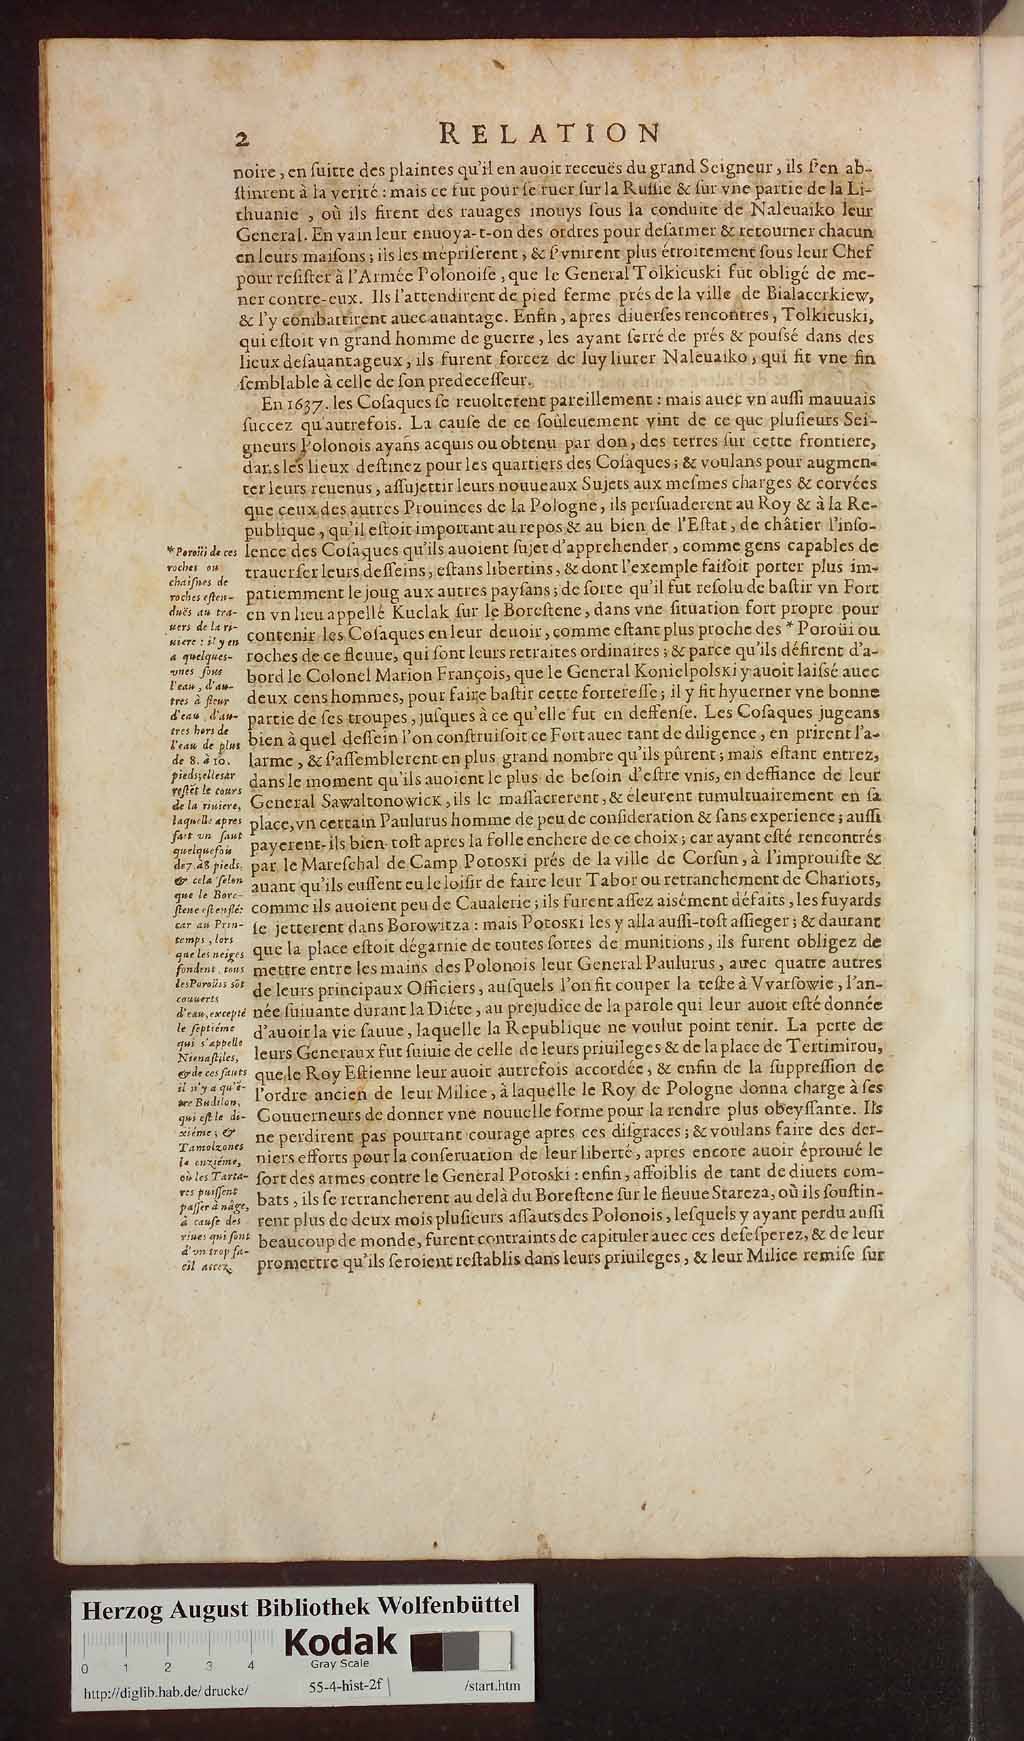 2 RELATION
noire, en ſuitte des plaintes qu'il en auoit receuës du grand Seigneur, ils ſ'en ab-
ſtinrent à la verité : mais ce fut pour ſe ruer ſur la Ruſſie & ſur vne partie de la Li-
thuanie , où ils firent des rauages inouys ſous la conduite de Naleuaiko leur
General. En vain leur enuoya-t-on des ordres pour deſarmer & retourner chacun
en leurs maiſons ; ils les mépriſerent , & ſ'vnirent plus étroitement ſous leur Chef
pour reſiſter à l'Armée Polonoiſe , que le General Tolkieuski fut obligé de me-
ner contre-eux. Ils l'attendirent de pied ferme prés de la ville de Bialacerkiew,
& l'y combattirent auec auantage. Enfin , apres diuerſes rencontres , Tolkieuski,
qui eſtoit vn grand homme de guerre , les ayant ſerré de prés & pouſsé dans des
lieux deſauantageux , ils furent forcez de luy liurer Naleuaiko , qui fit vne fin
ſemblable à celle de ſon predeceſſeur.
En 1637. les Coſaques ſe reuolterent pareillement : mais auec vn auſſi mauuais
ſuccez qu'autrefois. La cauſe de ce ſoûleuement vint de ce que pluſieurs Sei-
gneurs Polonois ayans acquis ou obtenu par don, des terres ſur cette frontiere,
dans les lieux deſtinez pour les quartiers des Coſaques ; & voulans pour augmen-
ter leurs reuenus , aſſujettir leurs nouueaux Sujets aux meſmes charges & corvées
que ceux des autres Prouinces de la Pologne , ils perſuaderent au Roy & à la Re-
publique , qu'il eſtoit important au repos & au bien de l'Eſtat , de châtier l'inſo-
lence des Coſaques qu'ils auoient ſujet d'apprehender , comme gens capables de
trauerſer leurs deſſeins , eſtans libertins , & dont l'exemple faiſoit porter plus im-
patiemment le joug aux autres payſans ; de ſorte qu'il fut reſolu de baſtir vn Fort
en vn lieu appellé Kuclak ſur le Boreſtene , dans vne ſituation fort propre pour
contenir les Coſaques en leur deuoir , comme eſtant plus proche des * Poroüi ou
roches de ce fleuue, qui ſont leurs retraites ordinaires ; & parce qu'ils défirent d'a-
bord le Colonel Marion François, que le General Konielpolski y auoit laiſsé auec
deux cens hommes, pour faire baſtir cette fortereſſe ; il y fit hyuerner vne bonne
partie de ſes troupes , juſques à ce qu'elle fut en deffenſe. Les Coſaques jugeans
bien à quel deſſein l'on conſtruiſoit ce Fort auec tant de diligence , en prirent l'a-
larme , & ſ'aſſemblerent en plus grand nombre qu'ils pûrent ; mais eſtant entrez,
dans le moment qu'ils auoient le plus de beſoin d'eſtre vnis, en deffiance de leur
General Sawaltonowick , ils le maſſacrerent, & éleurent tumultuairement en ſa
place, vn certain Paulurus homme de peu de conſideration & ſans experience ; auſſi
payerent-ils bien-toſt apres la folle enchere de ce choix ; car ayant eſté rencontrés
par le Mareſchal de Camp Potoski prés de la ville de Corſun, à l'improuiſte &
auant qu'ils euſſent eu le loiſir de faire leur Tabor ou retranchement de Chariots,
comme ils auoient peu de Caualerie ; ils furent aſſez aisément défaits , les fuyards
ſe jetterent dans Borowitza : mais Potoski les y alla auſſi-toſt aſſieger ; & dautant
que la place eſtoit dégarnie de toutes ſortes de munitions , ils furent obligez de
mettre entre les mains des Polonois leur General Paulurus , auec quatre autres
de leurs principaux Officiers , auſquels l'on fit couper la teſte à Vvarſowie , l'an-
née ſuiuante durant la Diéte , au prejudice de la parole qui leur auoit eſté donnée
d'auoit la vie ſauue , laquelle la Republique ne voulut point tenir. La perte de
leurs Generaux fut ſuiuie de celle de leurs priuileges & de la place de Tertimirou,
que le Roy Eſtienne leur auoit autrefois accordée , & enfin de la ſuppreſſion de
l'ordre ancien de leur Milice , à laquelle le Roy de Pologne donna charge à ſes
Gouuerneurs de donner vne nouuelle forme pour la rendre plus obeyſſante. Ils
ne perdirent pas pourtant courage apres ces diſgraces ; & voulans faire des der-
niers efforts pour la conſeruation de leur liberté , apres encore auoir éprouué le
ſort des armes contre le General Potoski : enfin , affoiblis de tant de diuers com-
bats , ils ſe retrancherent au delà du Boreſtene ſur le fleuue Stareza, où ils ſouſtin-
rent plus de deux mois pluſieurs aſſauts des Polonois , leſquels y ayant perdu auſſi
beaucoup de monde, furent contraints de capituler auec ces deſeſperez, & de leur
promettre qu'ils ſeroient reſtablis dans leurs priuileges , & leur Milice remiſe ſur
* Poroüi de ces
roches ou
chaiſnes de
roches eſten-
duës au tra-
uers de la ri-
uiere : il y en
a quelques-
vnes ſous
l'eau, d'au-
tres à fleur
d'eau, d'au-
tres hors de
l'eau de plus
de 8. à 10.
pieds; elles ar
reſtẽt le cours
de la riuiere,
laquelle apres
fait vn ſaut
quelquefois
de 7. à 8 pieds,
& cela ſelon
que le Bore-
ſtene eſt enflé:
car au Prin-
temps, lors
que les neiges
fondent, tous
les Poroüis sõt
couuerts
d'eau, excepté
le ſeptiéme
qui s'appelle
Nienaſtiles,
& de ces ſauts
il n'y a qu'ê-
tre Budilon,
qui eſt le di-
xiéme; &
Tamolzones
le onziéme,
où les Tarta-
res puiſſent
paſſer à nâge,
à cauſe des
riues qui ſont
d'vn trop fa-
cil accez.
Herzog August Bibliothek Wolfenbüttel
0 1 2 3 4
Kodak
Gray Scale
http://diglib.hab.de/drucke/ 55-4-hist-2f /start.htm